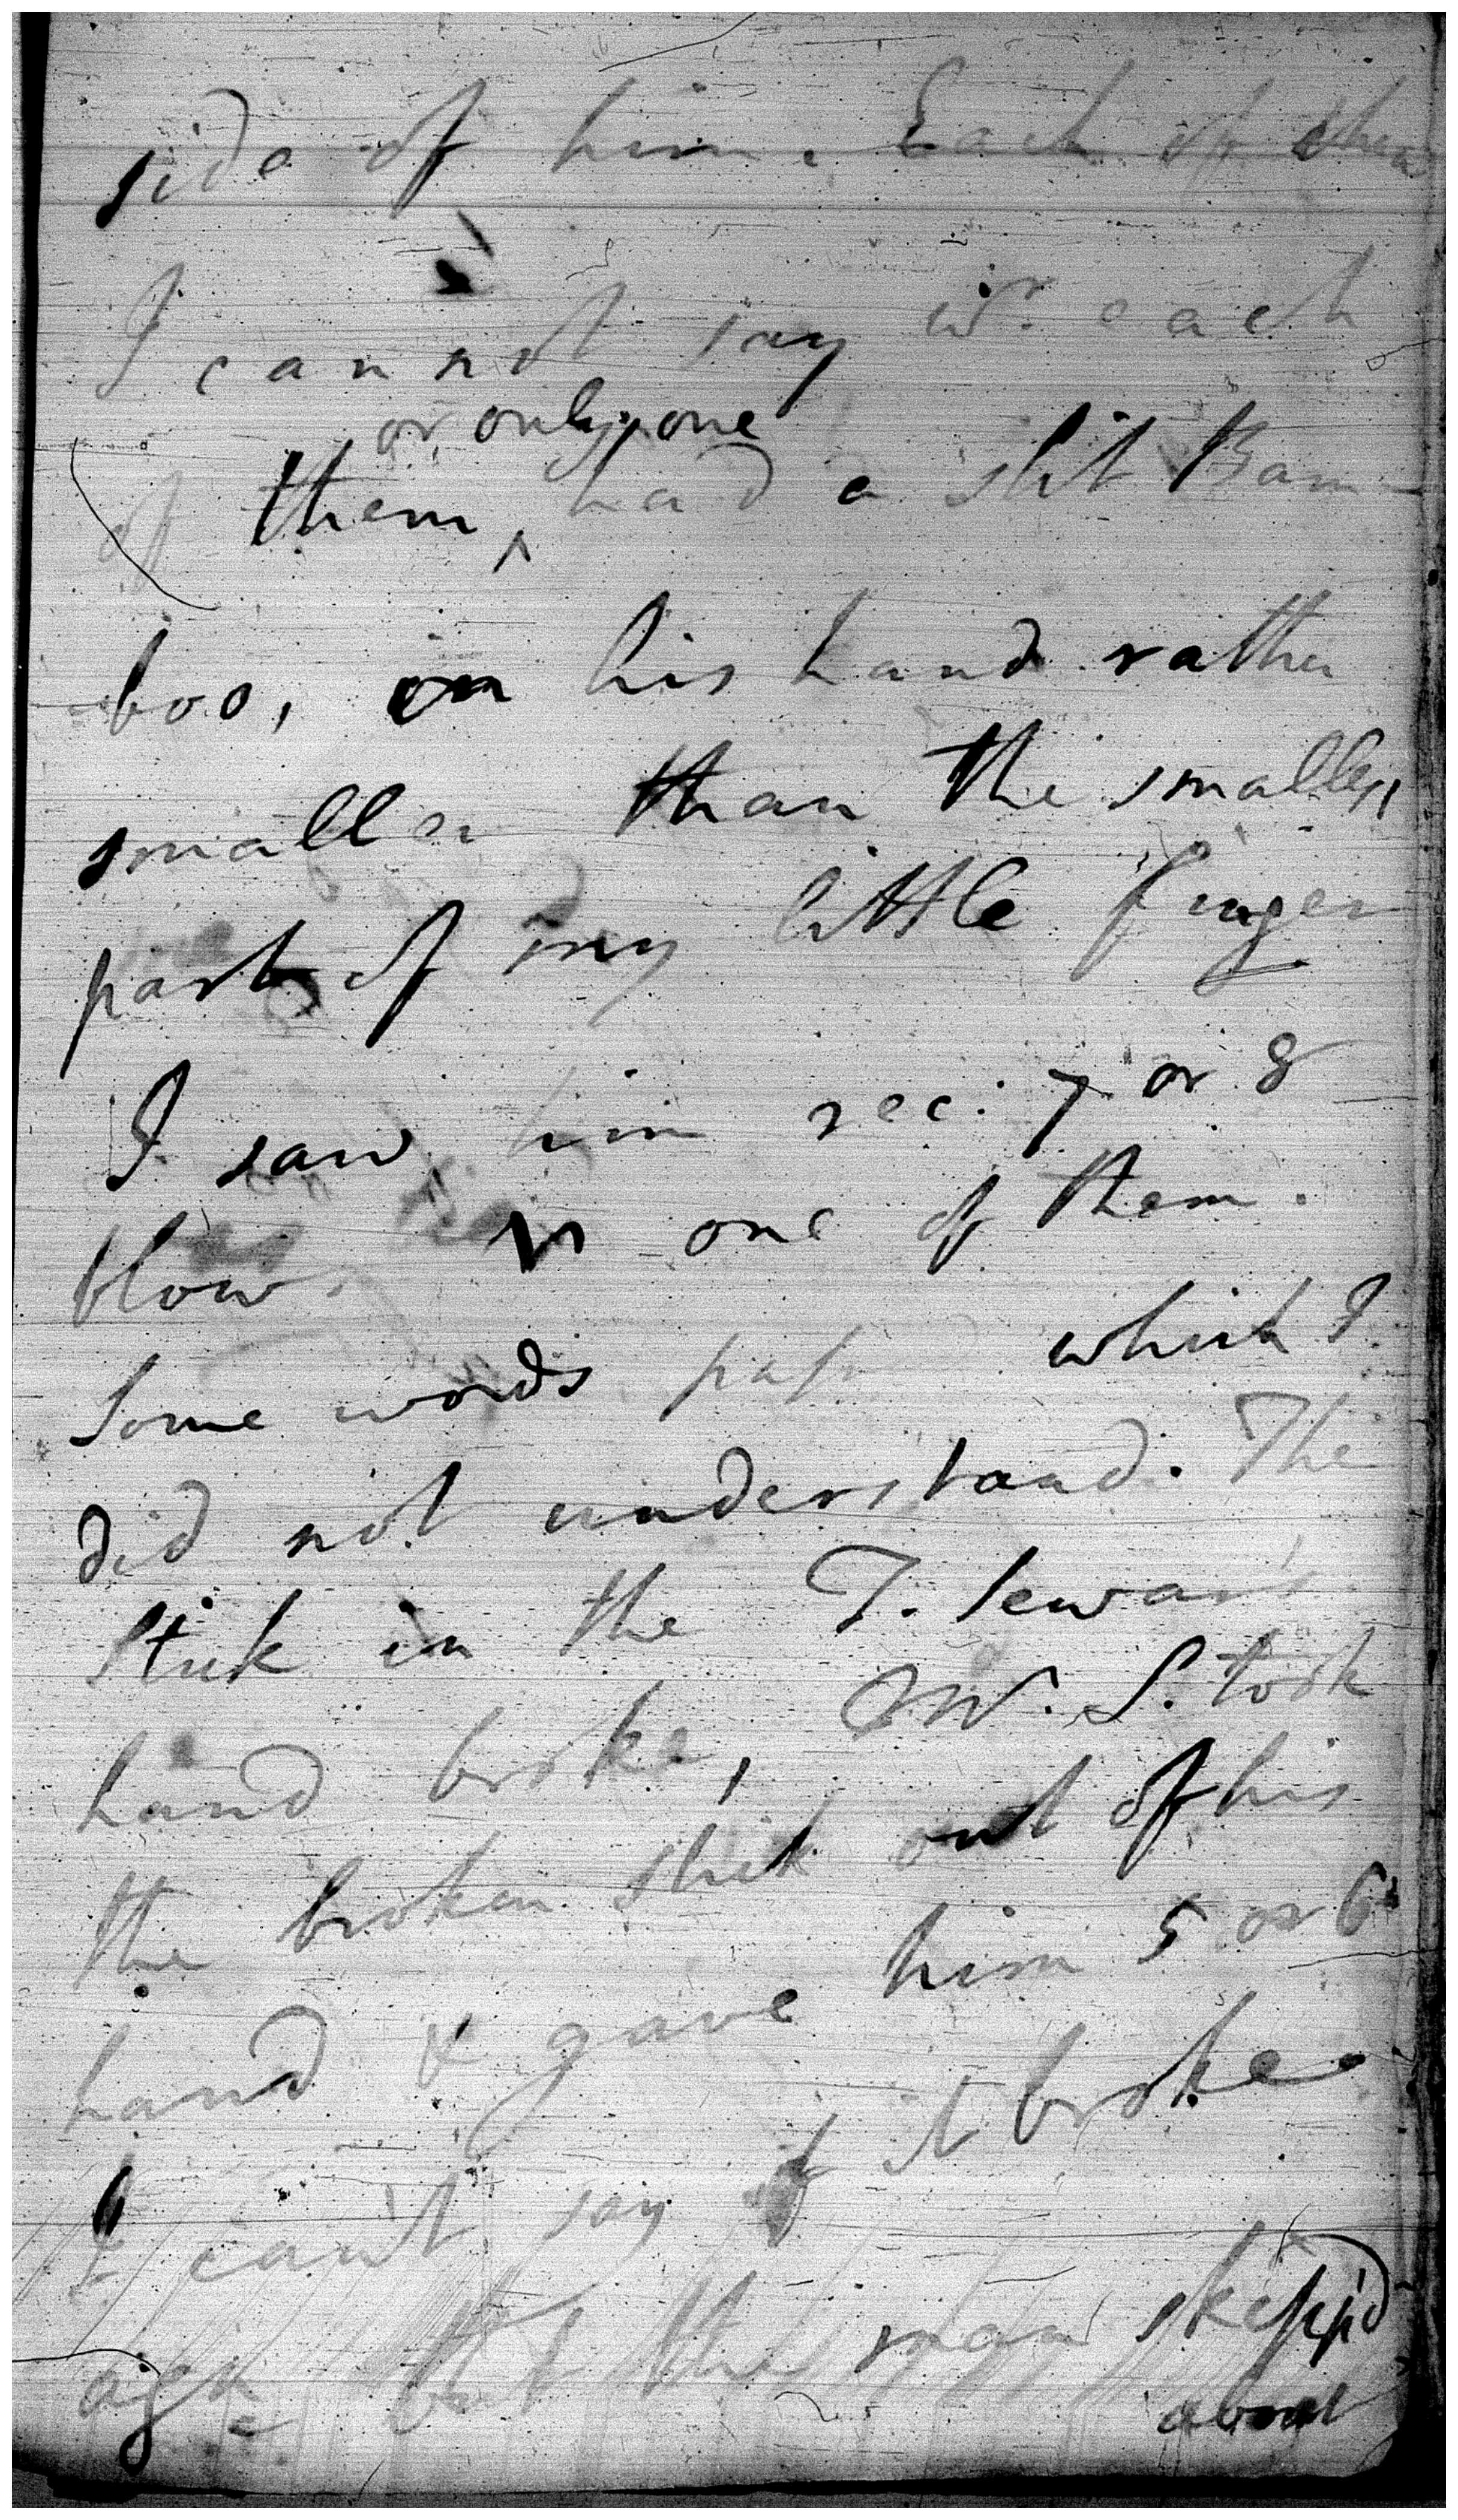 side of him. Each of them
I cannot say wr. each
or only one
of them ^ had a slit Bam-
boo, in his hand rather
smaller than the smalles
part of my little finger
I saw him rec. 7 or 8
blows one of them.
Some words which I
did not understand. The
Stick in the T. Sewans
hand broke, W. S. took
the broken stick out of his
hand & gave him 5 or 6
I can't say if it broke
but the man skipp'd
about